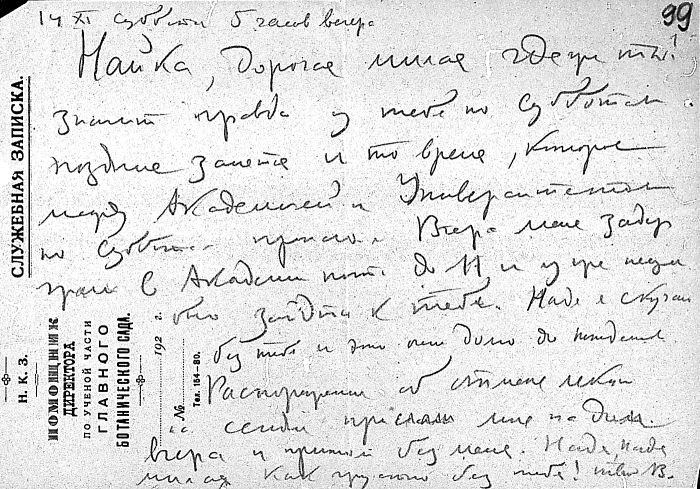 14 XI суббота 5 часов вечера
99
Найка, дорогая милая где же ты!
значит правда у тебя по субботам
поздние занятия и то время, которое
между Академией и Университетом
по субботам Вчера меня задер
жали в Академии почти до 11 и уже нельзя
было зайти к тебе. Надя я скучаю
без тебя и это очень долго до понедельн
Распоряжение об отмене лекции
сессии прислали мне на дом
вчера и приняли без меня. Надя, Надя
милая как грустно без тебя! твой В.
СЛУЖЕБНАЯ ЗАПИСКА.
Н. К. З.
ПОМОЩНИК
ДИРЕКТОРА
ПО УЧЕНОЙ ЧАСТИ
ГЛАВНОГО
БОТАНИЧЕСКОГО САДА.
192 г.
№
Тел. 164—80.